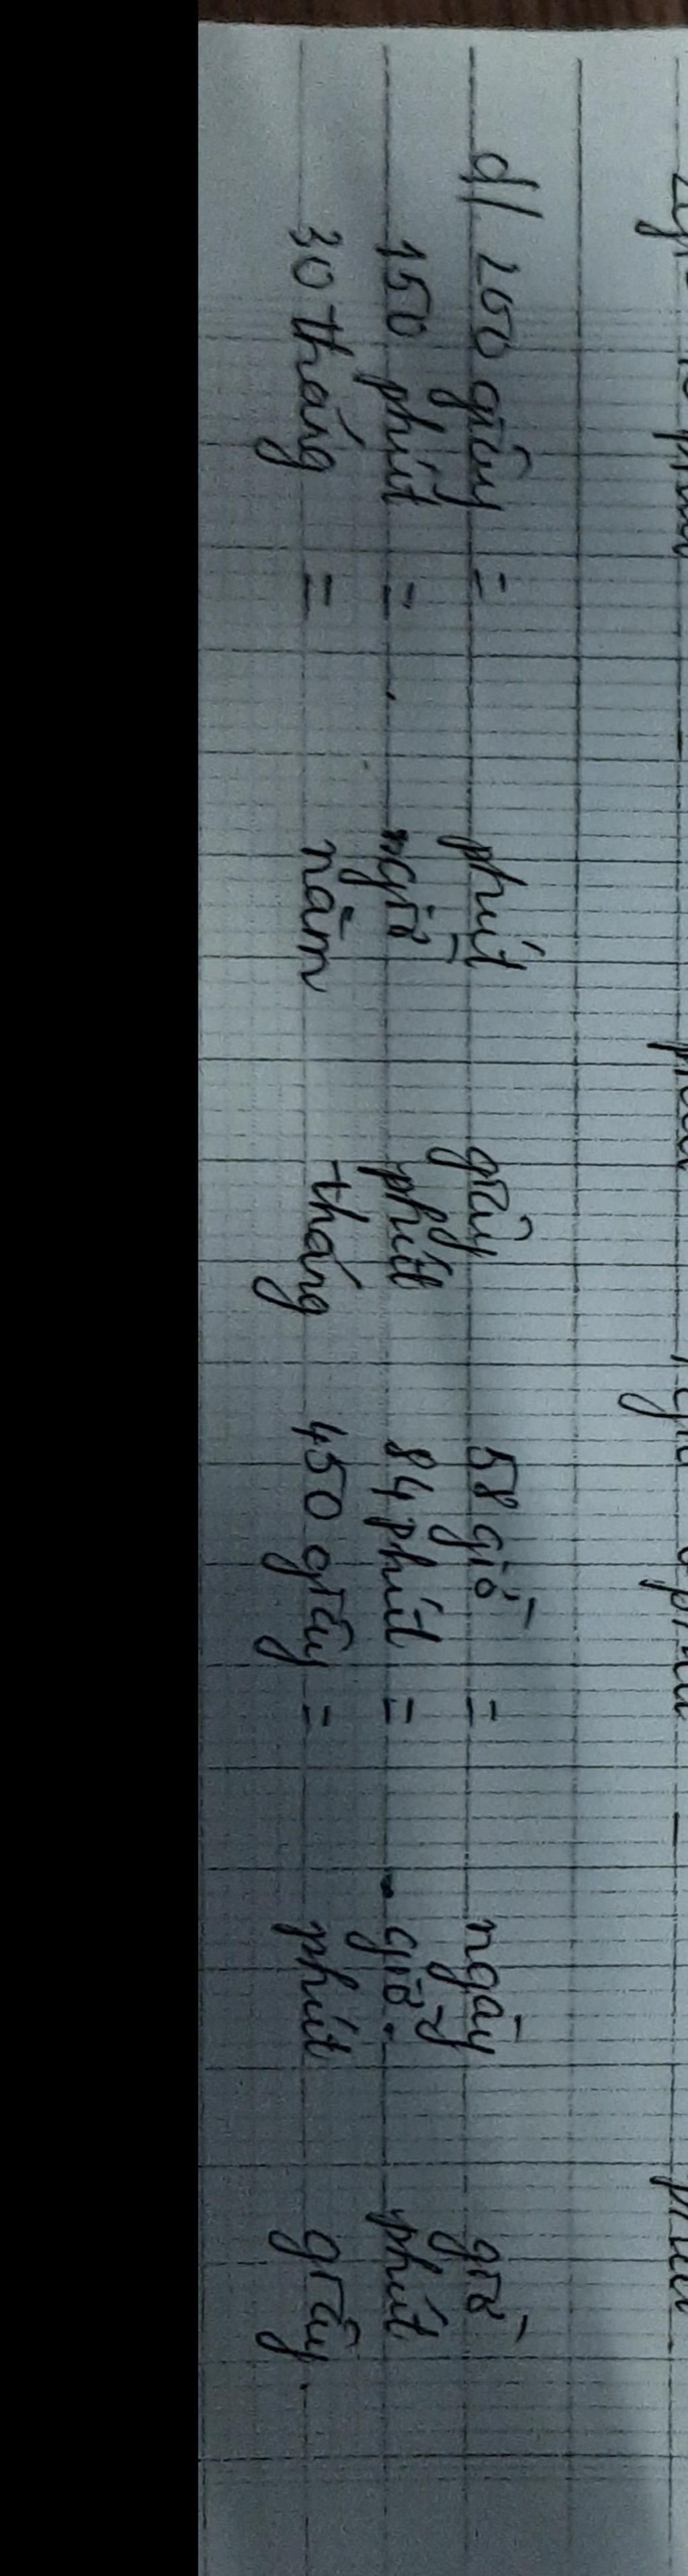 d/ 200 giây = phút giây 58 giờ = ngày giờ
150 phút = giờ phút 84 phút = giờ phút
30 tháng = năm tháng 450 giây = phút giây.